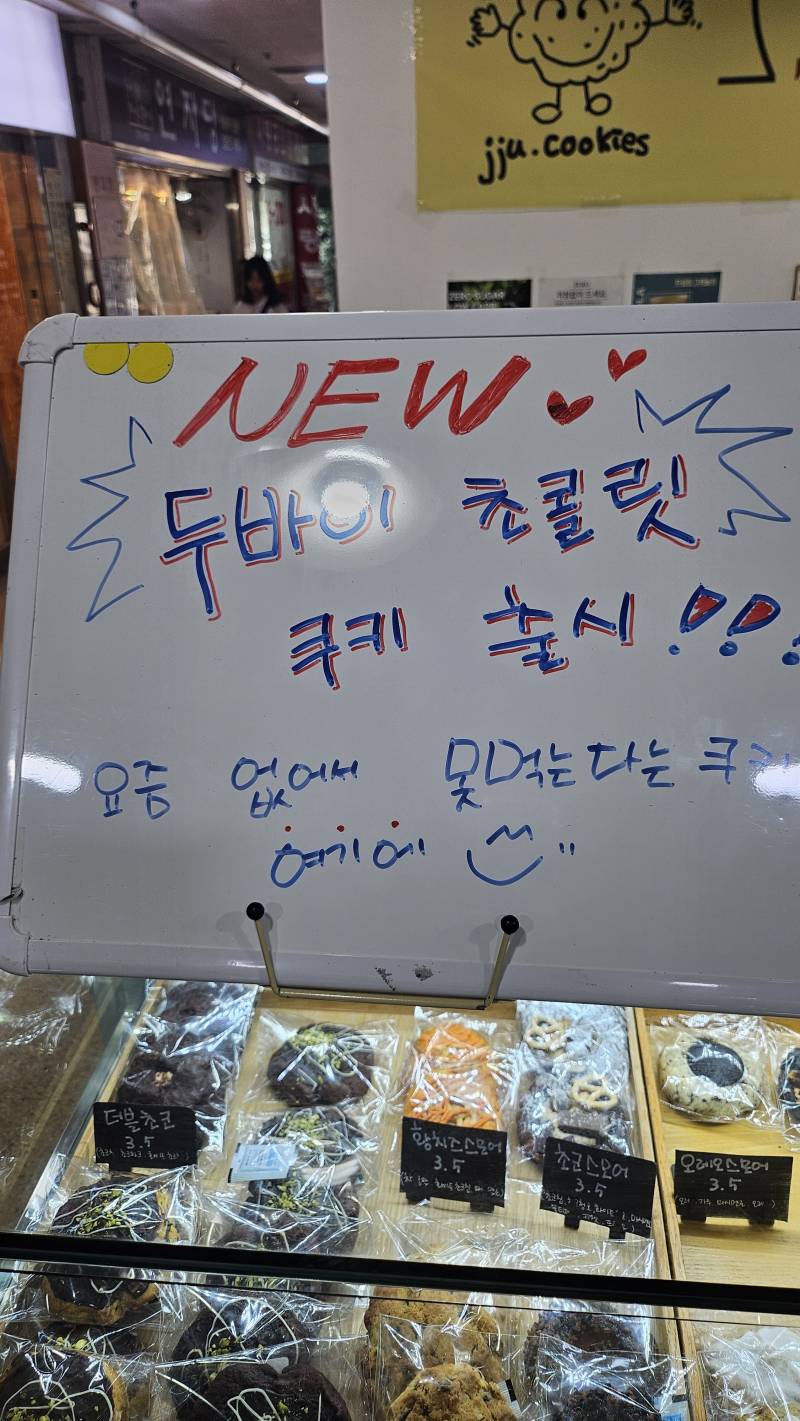 연자방
jju.cookies
ZERO SUGAR
NEW
두바이 초콜릿
쿠키 출시!!!
요즘 없어서 못먹는다는 쿠키
여기에
더블초코
3.5
황치즈스모어
3.5
초코스모어
3.5
오레오스모어
3.5